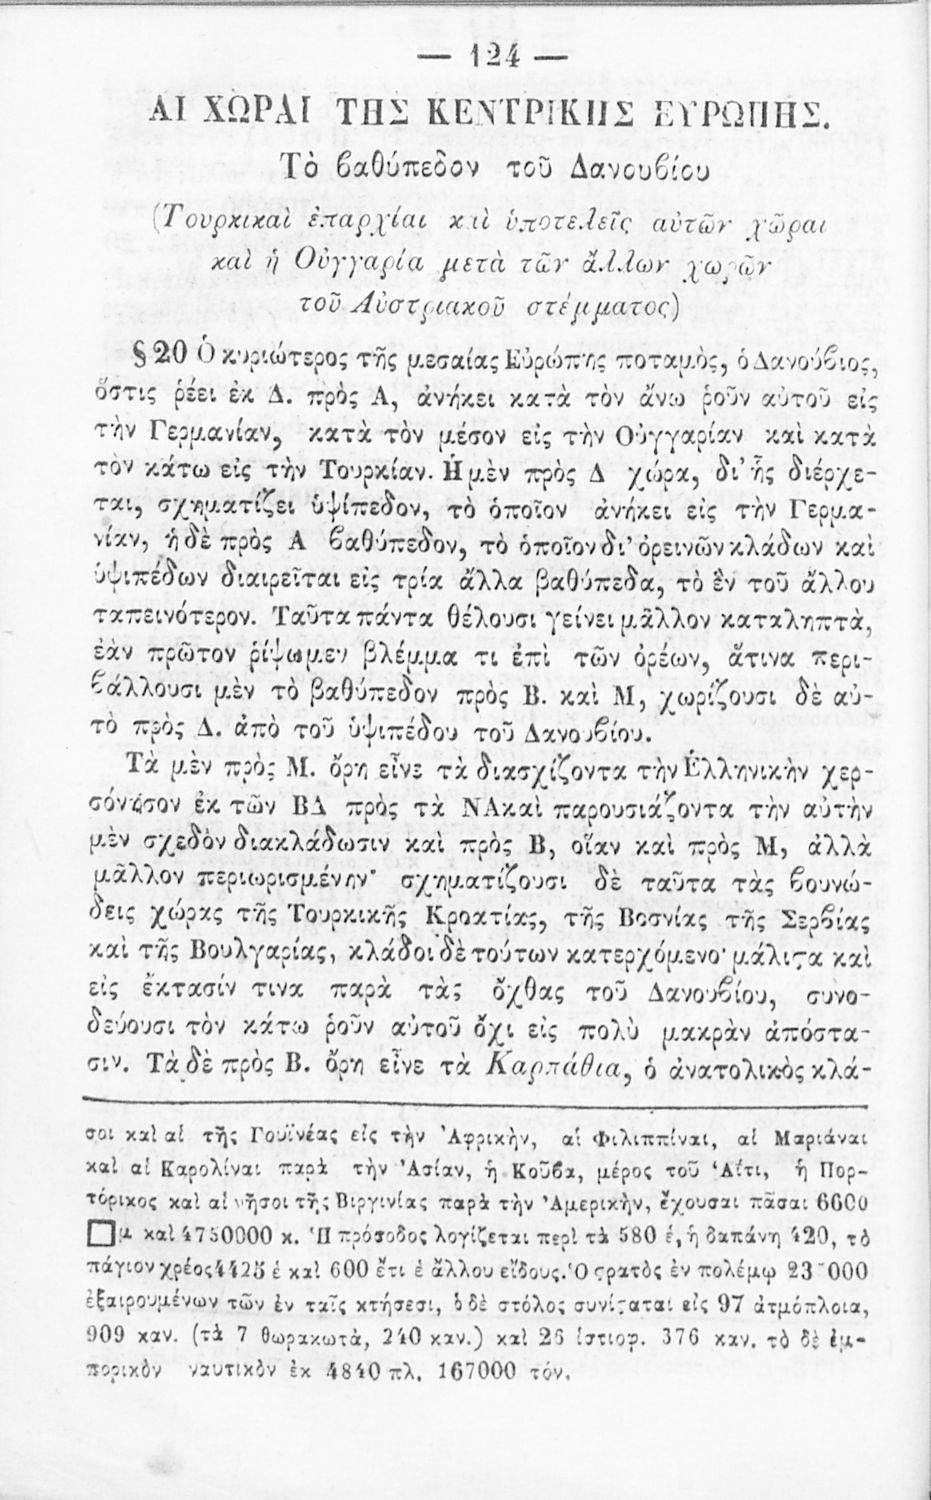 — 124 —
ΑΙ ΧΩΡΑΙ ΤΗΣ ΚΕΝΤΡΙΚΗΣ ΕΥΡΩΠΗΣ.
Τὸ βαθύπεδον τοῦ Δανουβίου
(Τουρκικαὶ ἐπαρχίαι καὶ ὑποτελεῖς αὐτῶν χῶραι
καὶ ἡ Οὑγγαρία μετὰ τῶν ἄλλων χωρῶν
τοῦ Αὐστριακοῦ στέμματος)
§ 20 Ὁ κυριώτερος τῆς μεσαίας Εὐρώπης ποταμὸς, ὁ Δανούβιος,
ὅστις ῥέει ἐκ Δ. πρὸς Α, ἀνήκει κατὰ τὸν ἄνω ῥοῦν αὐτοῦ εἰς
τὴν Γερμανίαν, κατὰ τὸν μέσον εἰς τὴν Οὑγγαρίαν καὶ κατὰ
τὸν κάτω εἰς τὴν Τουρκίαν. Ἡ μὲν πρὸς Δ χώρα, δι’ ἧς διέρχε-
ται, σχηματίζει ὑψίπεδον, τὸ ὁποῖον ἀνήκει εἰς τὴν Γερμα-
νίαν, ἡ δὲ πρὸς Α βαθύπεδον, τὸ ὁποῖον δι’ ὀρεινῶν κλάδων καὶ
ὑψιπέδων διαιρεῖται εἰς τρία ἄλλα βαθύπεδα, τὸ ἓν τοῦ ἄλλου
ταπεινότερον. Ταῦτα πάντα θέλουσι γείνει μᾶλλον καταληπτὰ,
ἐὰν πρῶτον ῥίψωμεν βλέμμα τι ἐπὶ τῶν ὀρέων, ἅτινα περι-
βάλλουσι μὲν τὸ βαθύπεδον πρὸς Β. καὶ Μ, χωρίζουσι δὲ αὐ-
τὸ πρὸς Δ. ἀπὸ τοῦ ὑψιπέδου τοῦ Δανουβίου.
Τὰ μὲν πρὸς Μ. ὄρη εἶνε τὰ διασχίζοντα τὴν Ἑλληνικὴν χερ-
σόνησον ἐκ τῶν ΒΔ πρὸς τὰ ΝΑ καὶ παρουσιάζοντα τὴν αὐτὴν
μὲν σχεδὸν διακλάδωσιν καὶ πρὸς Β, οἵαν καὶ πρὸς Μ, ἀλλὰ
μᾶλλον περιωρισμένην· σχηματίζουσι δὲ ταῦτα τὰς βουνώ-
δεις χώρας τῆς Τουρκικῆς Κροατίας, τῆς Βοσνίας τῆς Σερβίας
καὶ τῆς Βουλγαρίας, κλάδοι δὲ τούτων κατερχόμενοι μάλιστα καὶ
εἰς ἔκτασίν τινα παρὰ τὰς ὄχθας τοῦ Δανουβίου, συνο-
δεύουσι τὸν κάτω ῥοῦν αὐτοῦ ὄχι εἰς πολὺ μακρὰν ἀπόστα-
σιν. Τὰ δὲ πρὸς Β. ὄρη εἶνε τὰ Καρπάθια, ὁ ἀνατολικὸς κλά-
σοι καὶ αἱ τῆς Γουϊνέας εἰς τὴν Ἀφρικὴν, αἱ Φιλιππίναι, αἱ Μαριάναι
καὶ αἱ Καρολίναι παρὰ τὴν Ἀσίαν, ἡ Κοῦβα, μέρος τοῦ Ἁΐτι, ἡ Πορ-
τόρικος καὶ αἱ νῆσοι τῆς Βιργινίας παρὰ τὴν Ἀμερικὴν, ἔχουσαι πᾶσαι 6600
□μ καὶ 4750000 κ. Ἡ πρόσοδος λογίζεται περὶ τὰ 580 ἑ, ἡ δαπάνη 420, τὸ
πάγιον χρέος 4425 ἑ καὶ 600 ἔτι ἑ ἄλλου εἴδους. Ὁ στρατὸς ἐν πολέμῳ 23 000
ἐξαιρουμένων τῶν ἐν ταῖς κτήσεσι, ὁ δὲ στόλος συνίσταται εἰς 97 ἀτμόπλοια,
909 καν. (τὰ 7 θωρακωτὰ, 240 καν.) καὶ 26 ἱστιοφ. 376 καν. τὸ δὲ ἐμ-
πορικὸν ναυτικὸν ἐκ 4840 πλ. 167000 τόν.